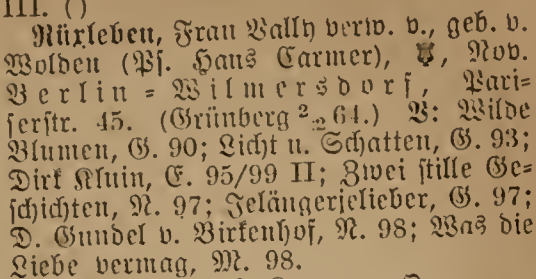 III. ()
Rüxleben, Frau Wally verw. v., geb. v.
Wolden (Ps. Hans Carmer), Nov.
Berlin = Wilmersdorf, Pari=
serstr. 45. (Grünberg 2 64.) V: Wilde
Blumen, G. 90; Licht u. Schatten, G. 93;
Dirk Kluin, E. 95/99 II; Zwei stille Ge=
schichten, N. 97; Jelängerjelieber, G. 97;
D. Gundel v. Birkenhof, N. 98; Was die
Liebe vermag, M. 98.